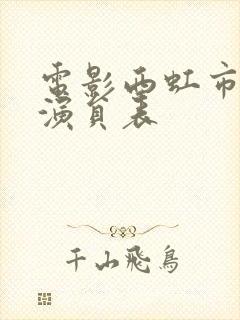 電影西虹市
演員表
千山飛鳥